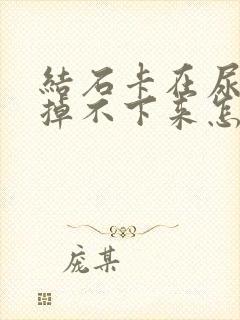 結石卡在尿
掉不下来怎
庞某